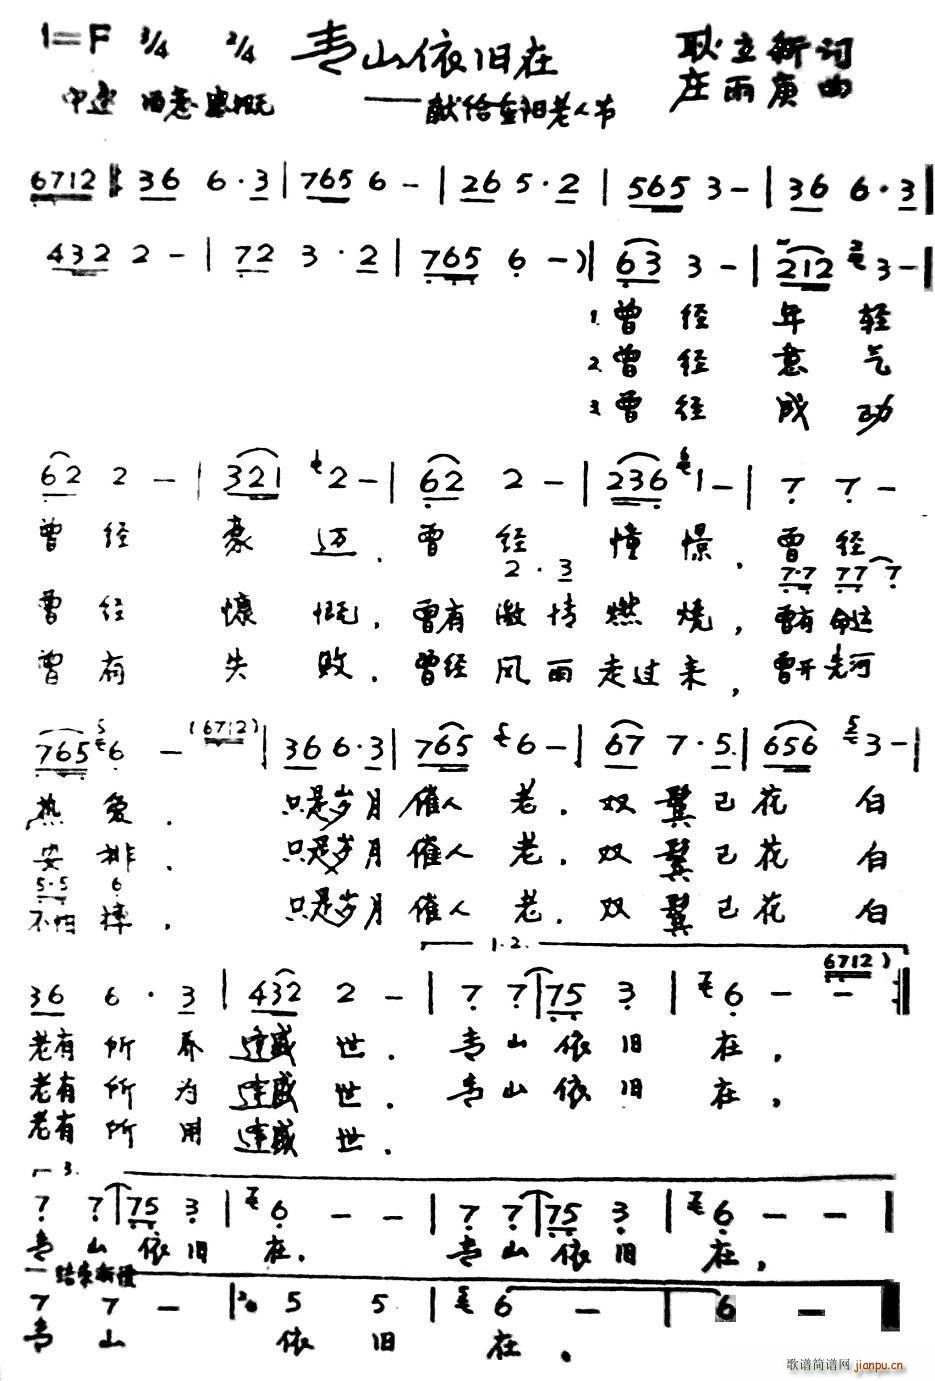 1=F 3/4 2/4 青山依旧在 耿立新词
中速 ——献给重阳老人节 庄雨庚曲
6712 36 6·3 | 765 6 - | 26 5·2 | 565 3 - | 36 6·3 |
432 2 - | 72 3·2 | 765 6 -) | 63 3 - | 212 3 - |
1.曾经年轻
2.曾经意气
3.曾经成功
62 2 - | 321 2 - | 62 2 - | 236 1 - | 7 7 -
曾经豪迈.曾经憧憬.曾经
2·3 7·7 77 7
曾经慷慨,曾有激情燃烧,曾有命运
曾有失败.曾经风雨走过来,曾开先河
765 6 - (6712) | 36 6·3 | 765 6 - | 67 7·5 | 656 3 - |
热爱.只是岁月催人老.双鬓已花白
安排.只是岁月催人老.双鬓已花白
5·5 6
不怕摔.只是岁月催人老.双鬓已花白
1.2.
36 6·3 | 432 2 - | 7 7 | 75 3 | 6 - - 6712)
老有所养逢盛世.青山依旧在,
老有所为逢盛世.青山依旧在,
老有所用逢盛世.
3.
7 7 | 75 3 | 6 - - | 7 7 | 75 3 | 6 - -
青山依旧在.青山依旧在,
7 7 - | 5 5 | 6 - | 6 -
青山依旧在.
歌谱简谱网 jianpu.cn